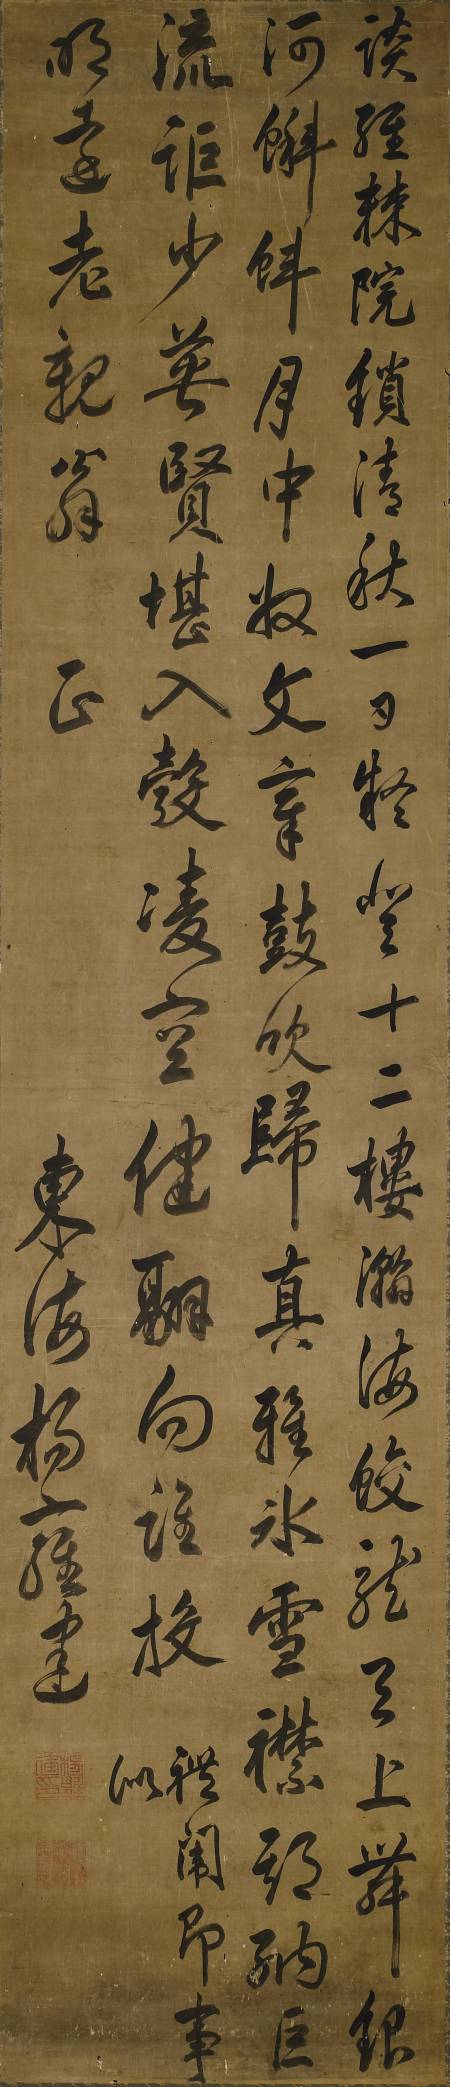 談經棘院鎖清秋一日疑登十二樓瀚海蛟龍天上舞銀
河蝌蚪月中收文章鼓吹歸真雅冰雪襟期納巨
流詎少英賢堪入彀凌空健翮向誰投
禮闈即事
似
明遠老親翁 正
東海楊雍建